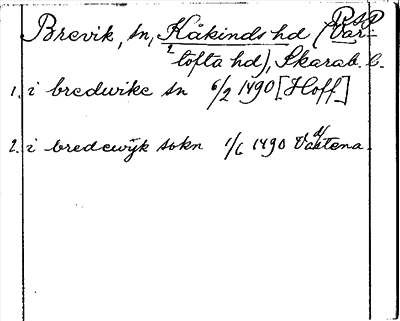 PSP
Brevik, sn, Kåkinds hd (Var-
tofta hd), Skarab. l.
1. i bredwike sn 6/2 1490 [Hoff]
2. i bredewijk sokn 1/6 1490 Vadstena.